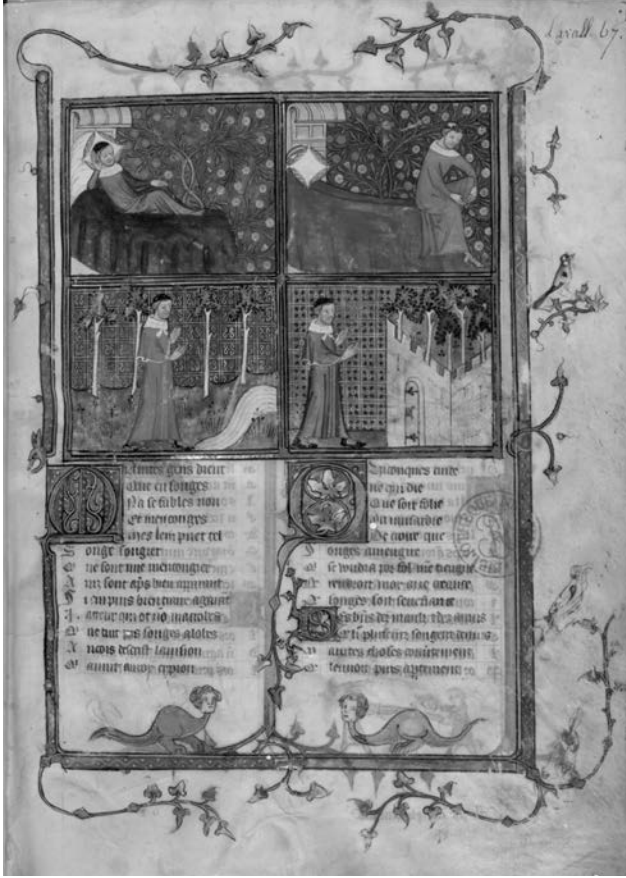 Lavall. 67.
Maintes gens dient
Que en songes
Na se fables non
Et menconges
Mes len puet tel
S onge songier
Q ne sont mie mencongier
A inz sont aps bien aparant
S i em puis bien traire a garant
I. aucteur qui ot nõ macrobes
Q ne tint pas songes a lobes
A ncois descrist lavision
Q avint au roy cypion
Quiconques cuide
ne qui die
Que soit folie
Ou musardie
De croire que
S onges aviengne
Q se voudra por fol me tiengne
songes soit senefiance
Des biens
li plusieur songent de nuis
M aintes choses couvertement